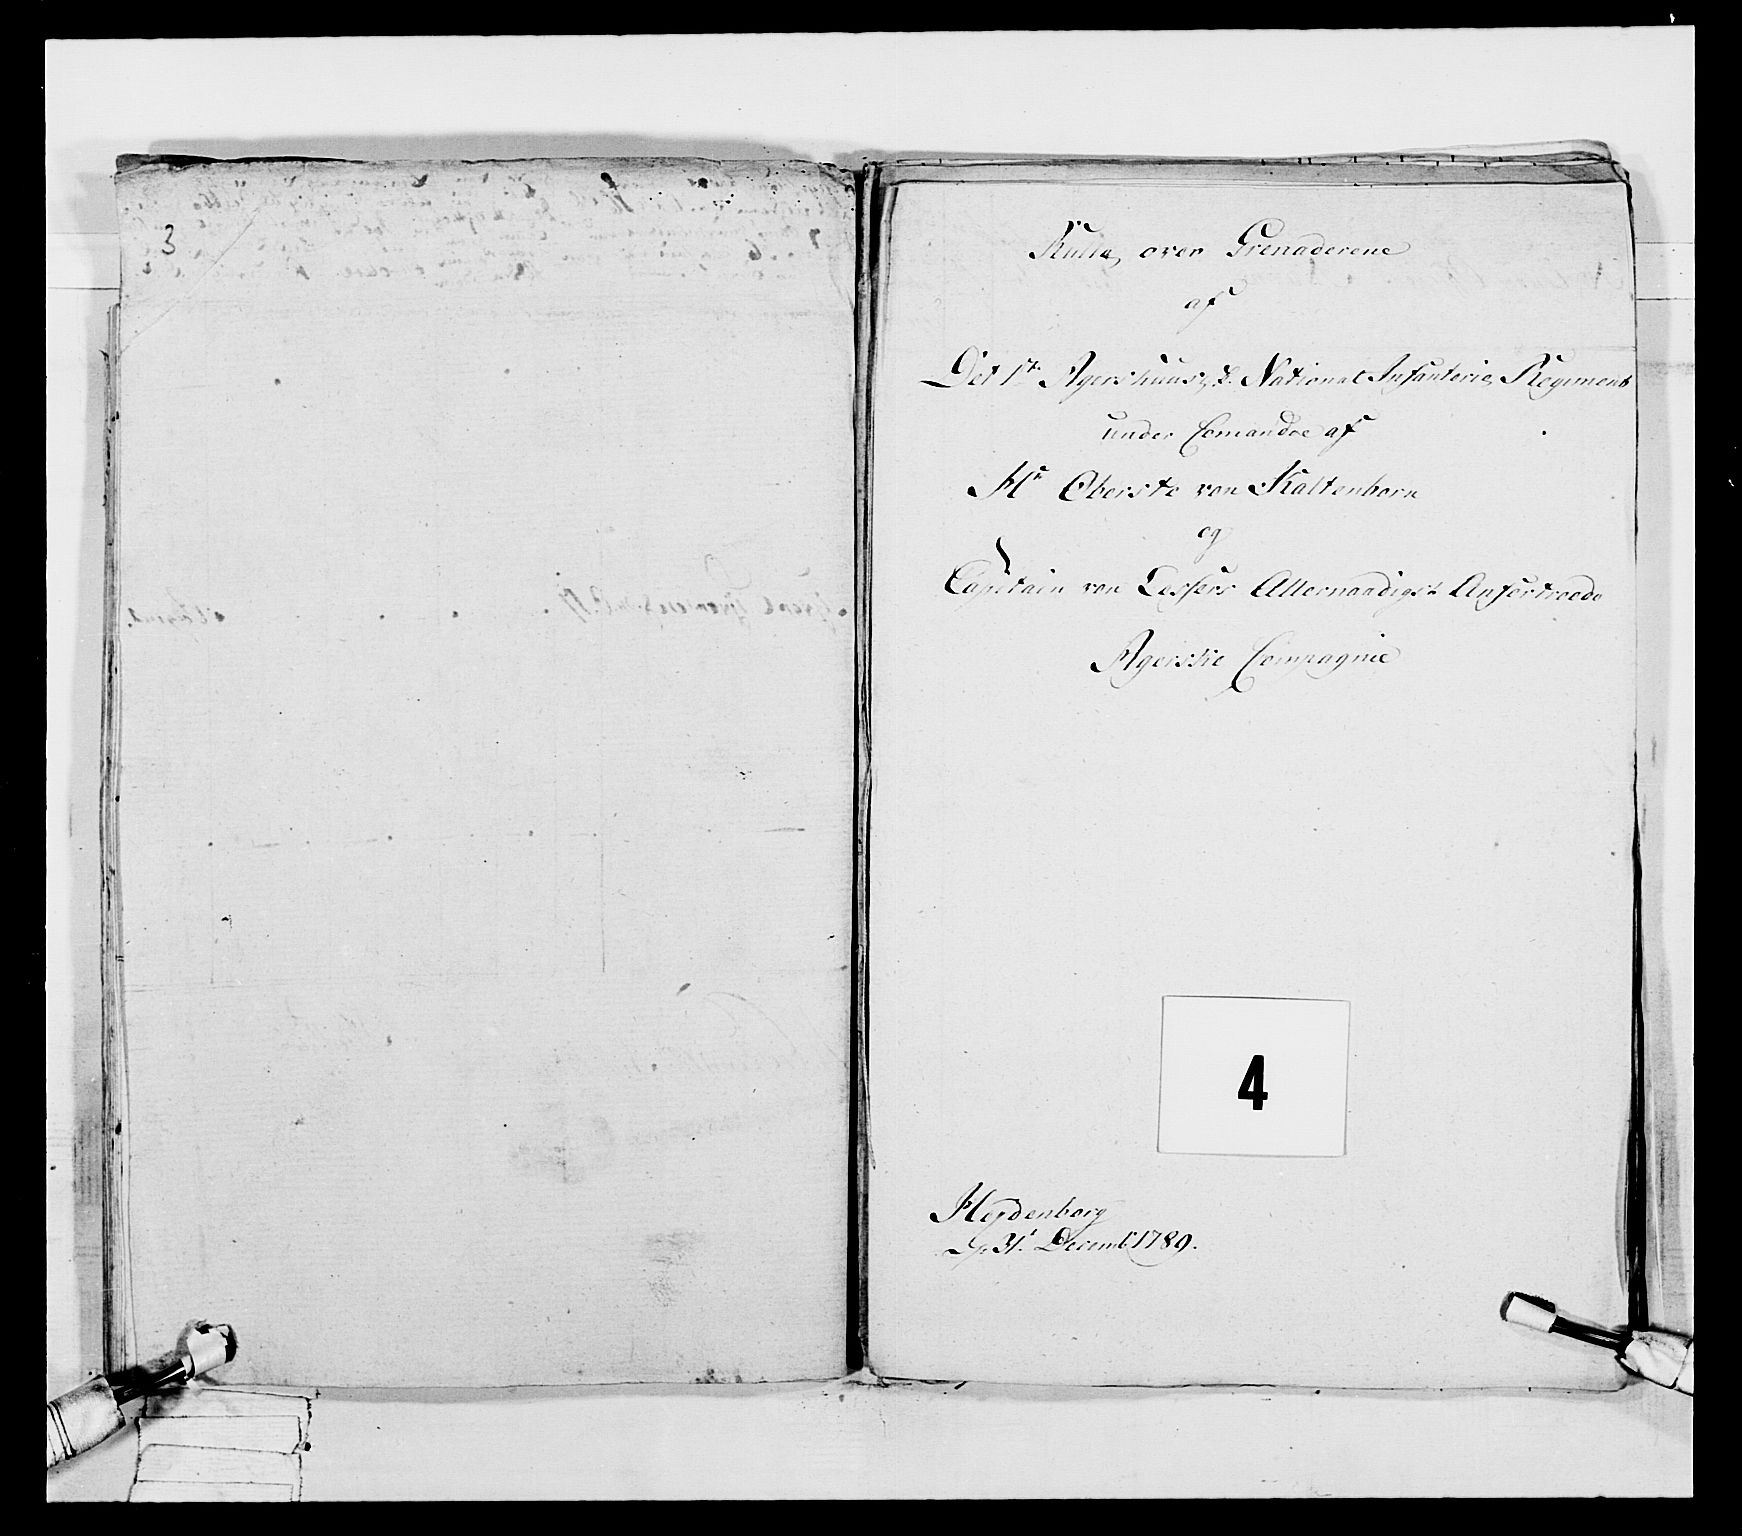 3
Rulla over Grenaderene
af
Det 1te Agershuusske National Infanterie Regiment
under Comandoe af
Hr Oberste von Kaltenborn
og
Capitain von Lessers Allernaadigst Anfortroede
Agerske Compagnie
4
Heydenborg
31t Decembr 1789.